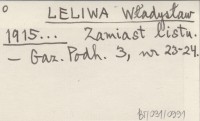 LELIWA Władysław
1915... Zamiast listu.
— Gaz. Podh. 3, nr 23-24.